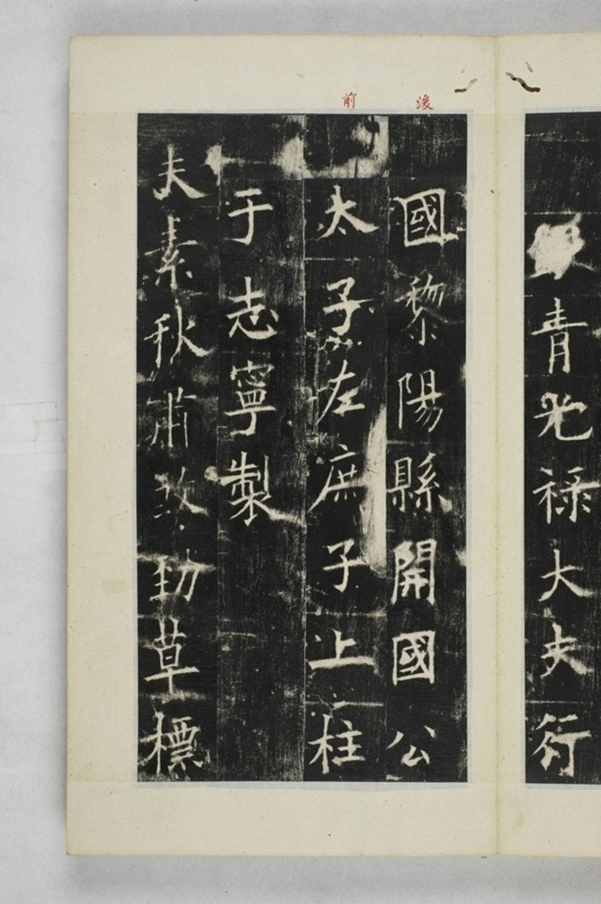 後
前
青光祿大夫行
國黎陽縣開國公
太子左庶子上柱
于志寧製
夫素秋肅煞勁草標